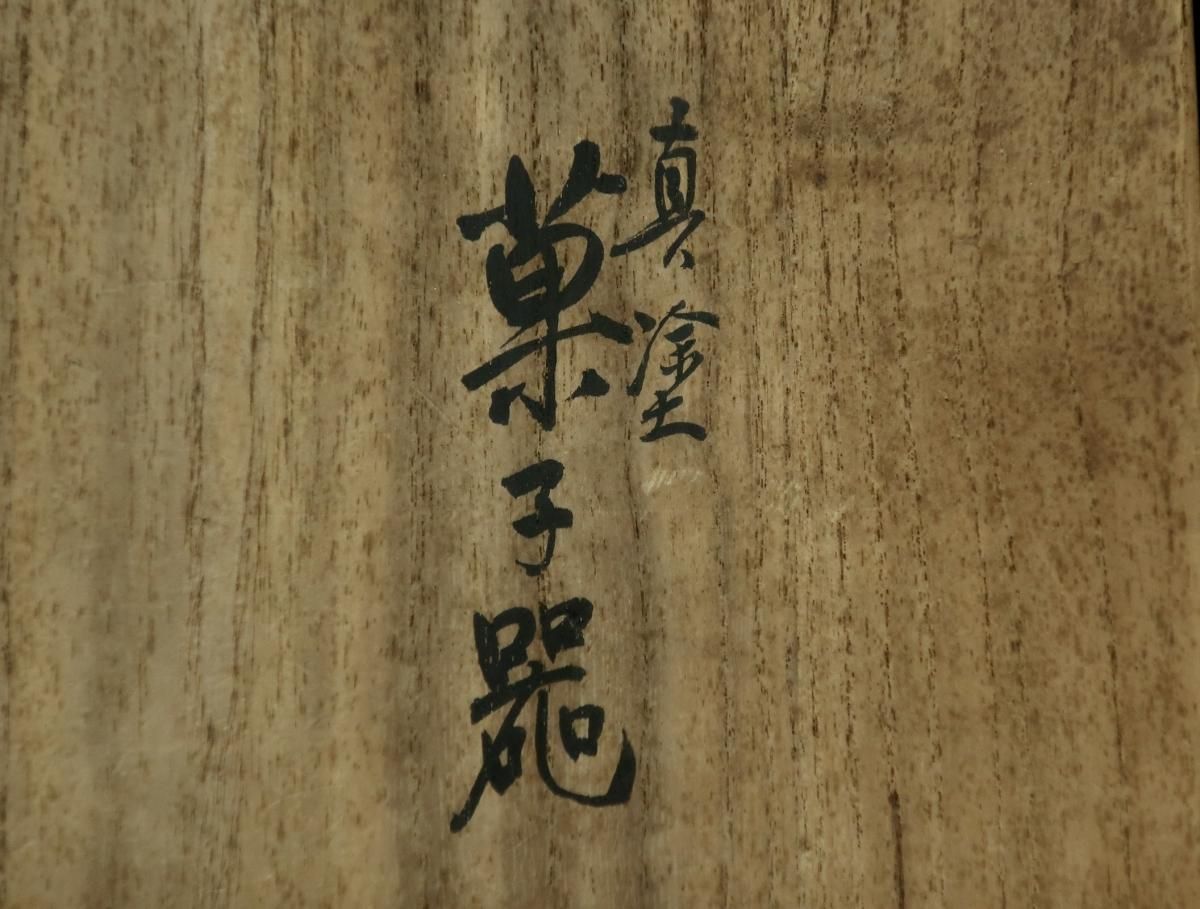 真塗
菓子器